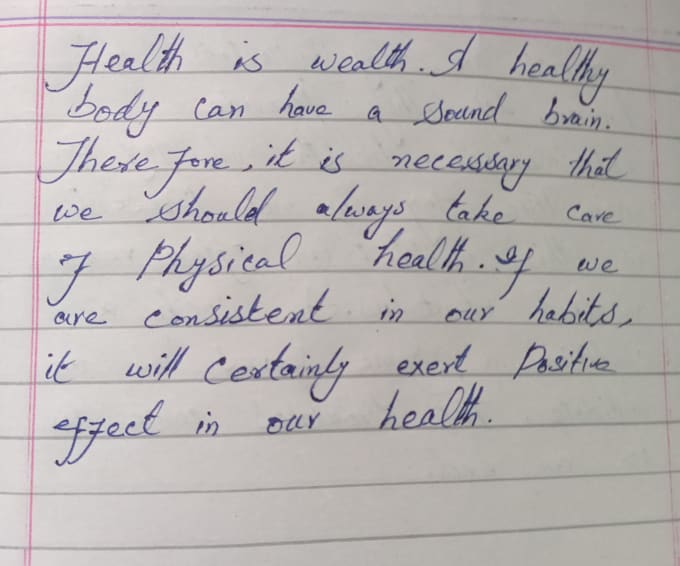 Health is wealth. A healthy
body can have a sound brain.
Therefore, it is necessary that
we should always take care
of Physical health. If we
are consistent in our habits,
it will certainly exert Positive
effect in our health.